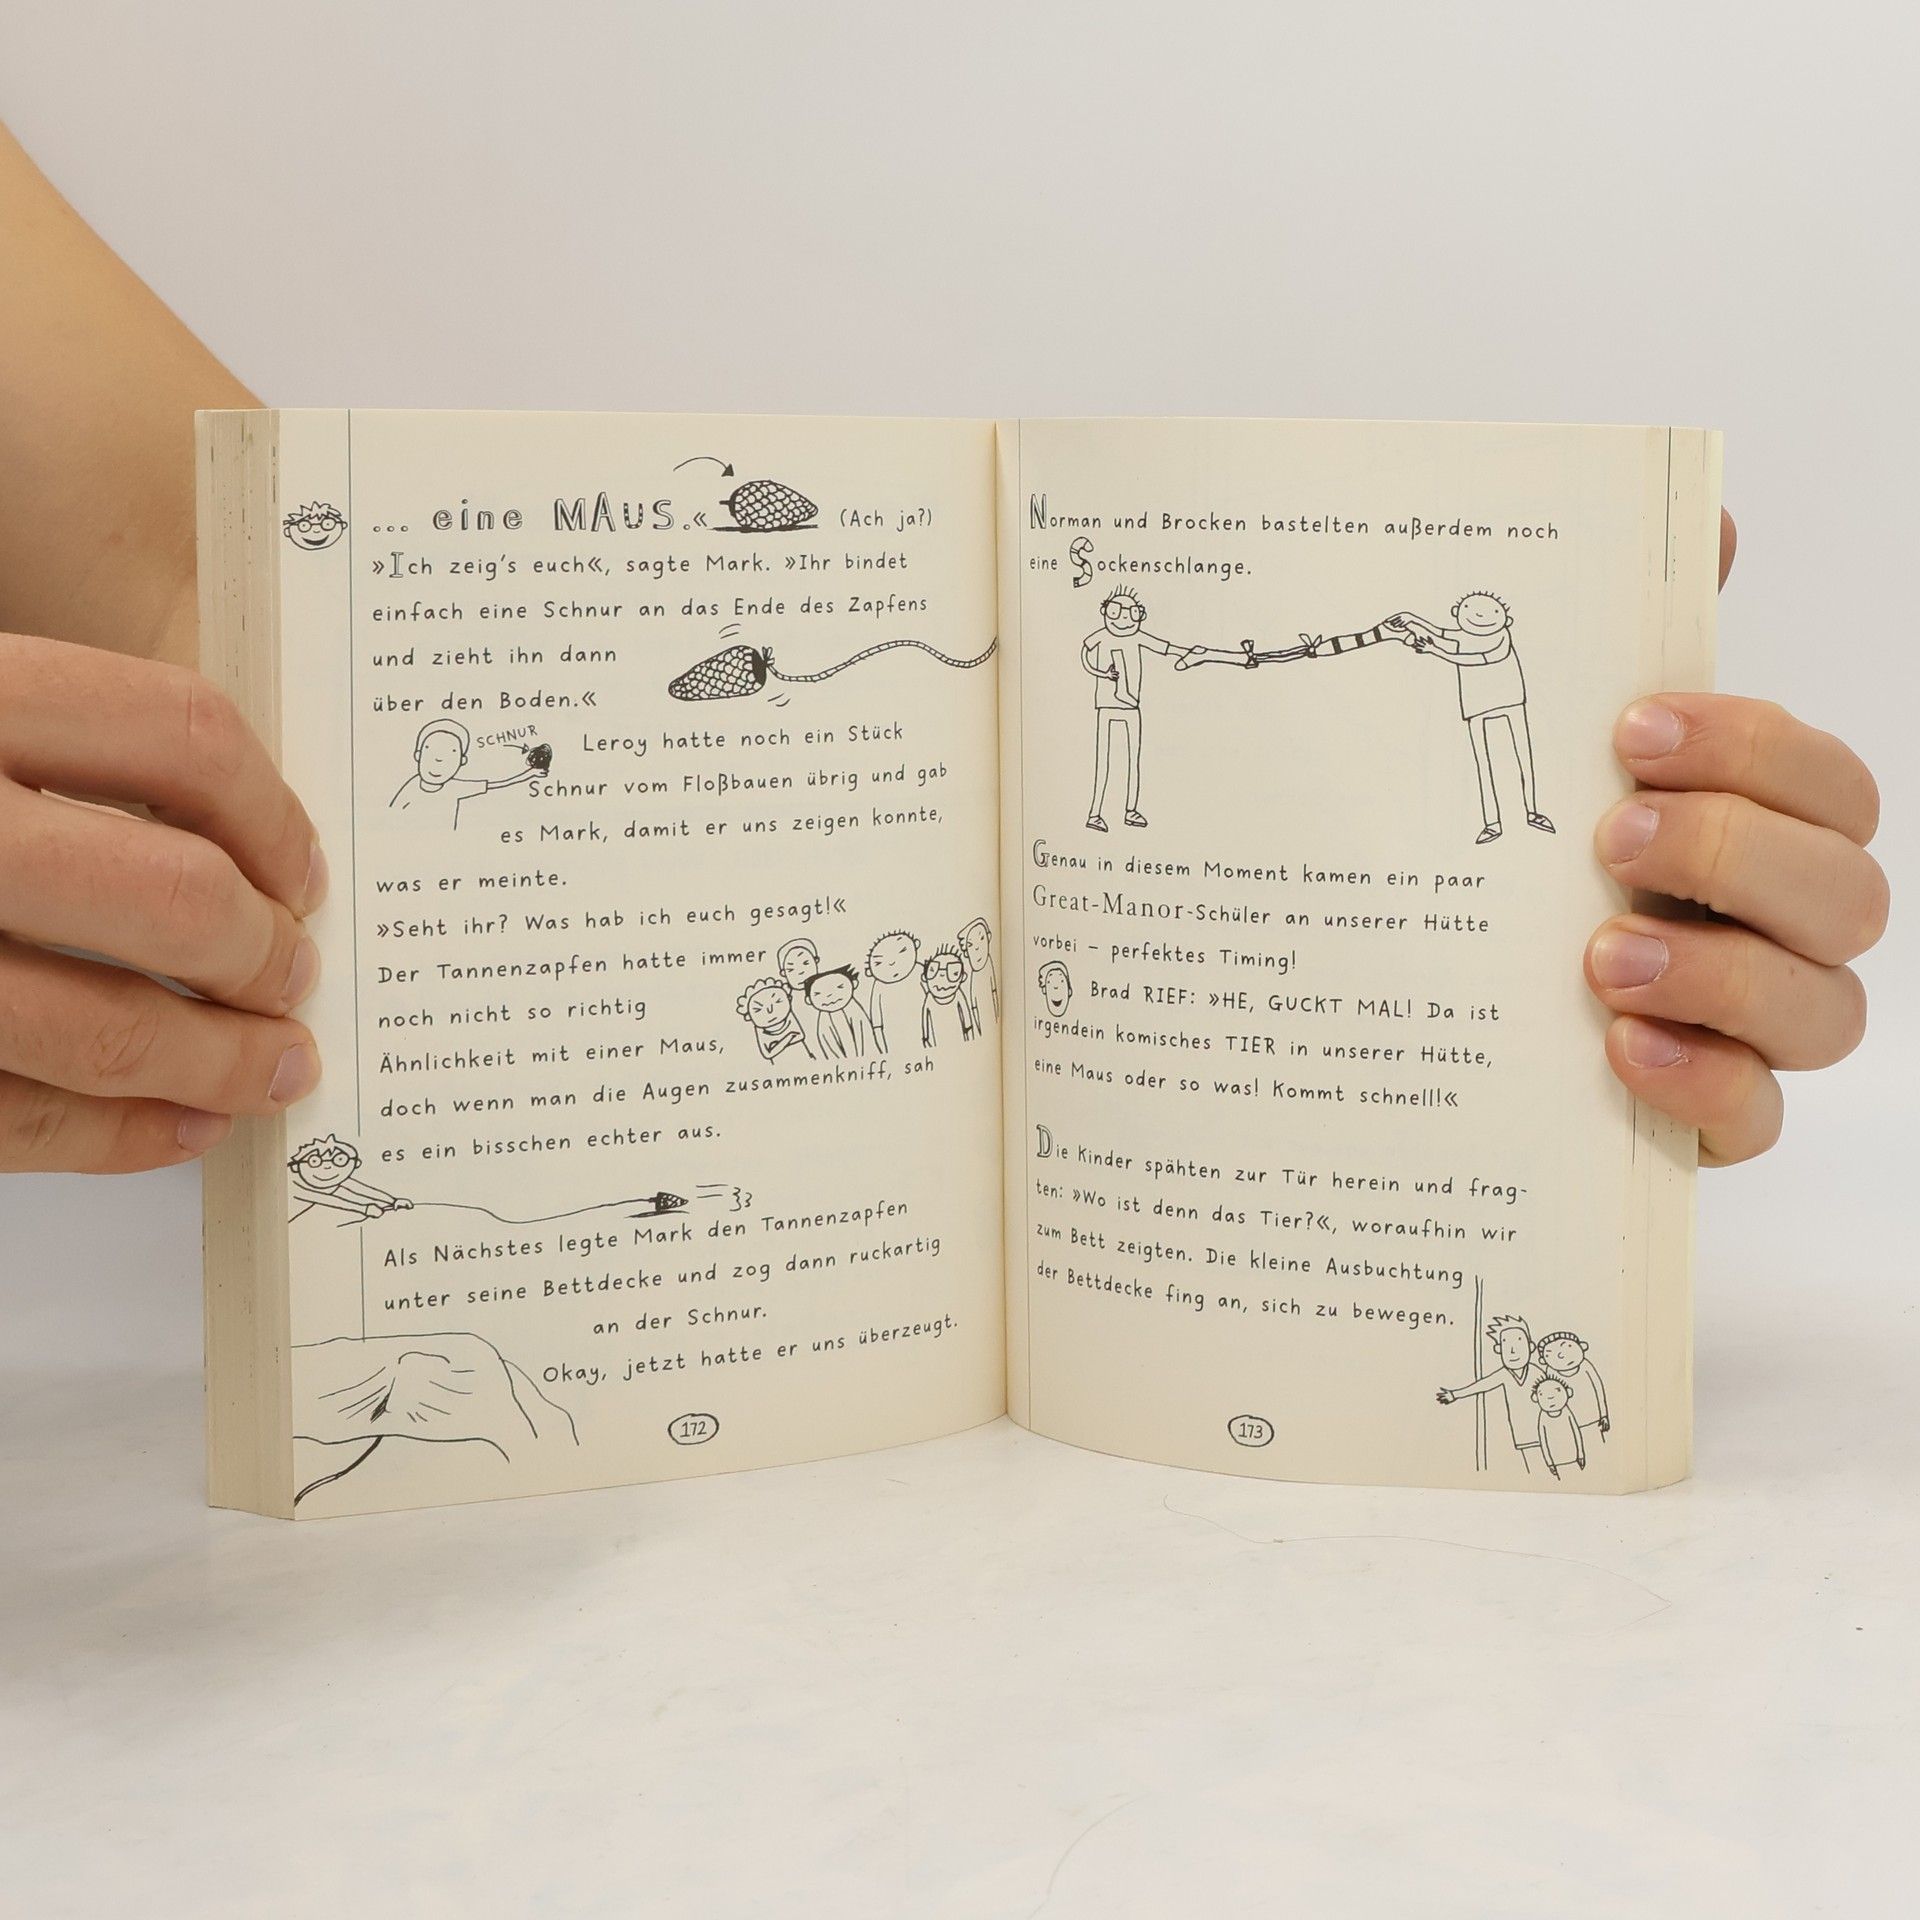 ... eine MAUS.« (Ach ja?)
»Ich zeig's euch«, sagte Mark. »Ihr bindet
einfach eine Schnur an das Ende des Zapfens
und zieht ihn dann
über den Boden.«
SCHNUR
Leroy hatte noch ein Stück
Schnur vom Floßbauen übrig und gab
es Mark, damit er uns zeigen konnte,
was er meinte.
»Seht ihr? Was hab ich euch gesagt!«
Der Tannenzapfen hatte immer
noch nicht so richtig
Ähnlichkeit mit einer Maus,
doch wenn man die Augen zusammenkniff, sah
es ein bisschen echter aus.
Als Nächstes legte Mark den Tannenzapfen
unter seine Bettdecke und zog dann ruckartig
an der Schnur.
Okay, jetzt hatte er uns überzeugt.
172
Norman und Brocken bastelten außerdem noch
eine Sockenschlange.
Genau in diesem Moment kamen ein paar
Great-Manor-Schüler an unserer Hütte
vorbei – perfektes Timing!
Brad RIEF: »HE, GUCKT MAL! Da ist
irgendein komisches TIER in unserer Hütte,
eine Maus oder so was! Kommt schnell!«
Die Kinder spähten zur Tür herein und frag-
ten: »Wo ist denn das Tier?«, woraufhin wir
zum Bett zeigten. Die kleine Ausbuchtung
der Bettdecke fing an, sich zu bewegen.
173